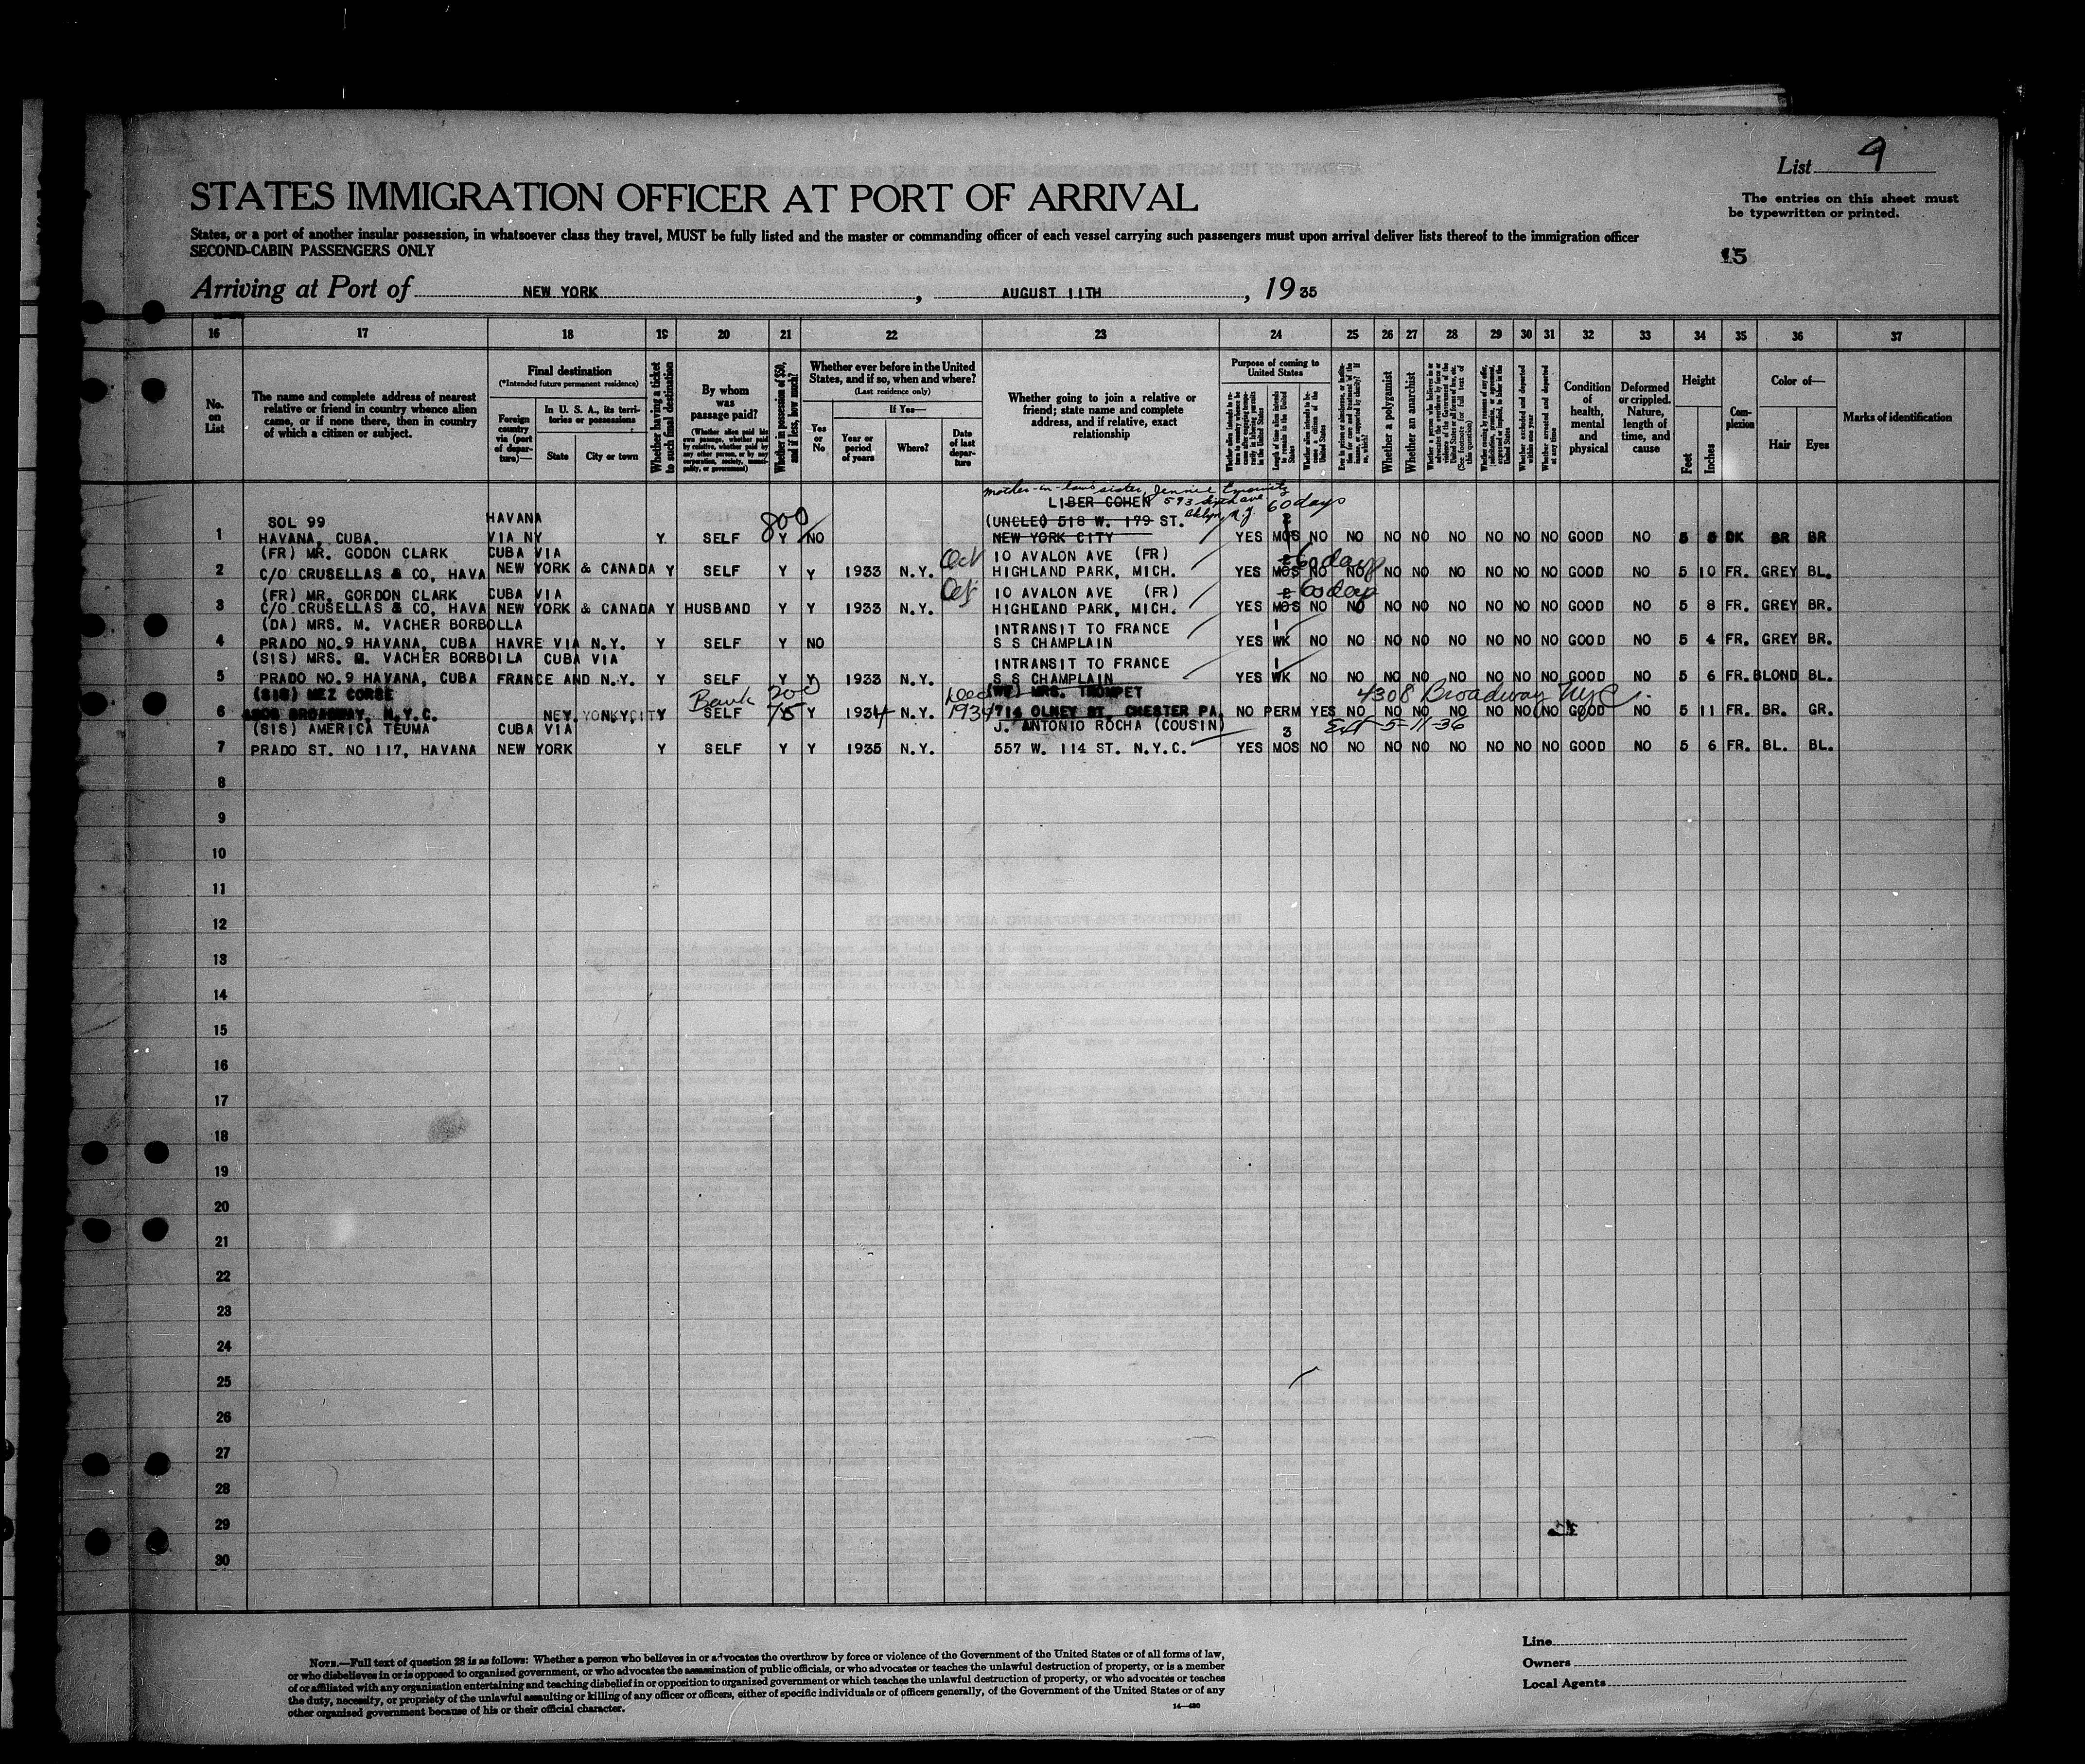 List 9
The entries on this sheet must
be typewritten or printed.
STATES IMMIGRATION OFFICER AT PORT OF ARRIVAL
States, or a port of another insular possession, in whatsoever class they travel, MUST be fully listed and the master or commanding officer of each vessel carrying such passengers must upon arrival deliver lists thereof to the immigration officer
SECOND-CABIN PASSENGERS ONLY
15
Arriving at Port of NEW YORK, AUGUST 11TH, 1935
16 17 18 19 20 21 22 23 24 25 26 27 28 29 30 31 32 33 34 35 36 37
No.
on
List
The name and complete address of nearest
relative or friend in country whence alien
came, or if none there, then in country
of which a citizen or subject.
Final destination
(*Intended future permanent residence)
Foreign
country
via (port
of depar-
ture)—
In U. S. A., its terri-
tories or possessions
State City or town
Whether having a ticket
to such final destination
By whom
was
passage paid?
(Whether alien paid his
own passage, whether paid
by relative, whether paid by
any other person, or by any
corporation, society, munici-
pality, or government)
Whether in possession of $50,
and if less, how much?
Whether ever before in the United
States, and if so, when and where?
(Last residence only)
Yes
or
No
If Yes—
Year or
period
of years
Where?
Date
of last
depar-
ture
Whether going to join a relative or
friend; state name and complete
address, and if relative, exact
relationship
Purpose of coming to
United States
Length of time alien intends
to remain in the United
States
Whether alien intends to be-
come a citizen of the
United States
Whether a polygamist
Whether an anarchist
Whether excluded and deported
within one year
Whether arrested and deported
at any time
Condition
of
health,
mental
and
physical
Deformed
or crippled.
Nature,
length of
time, and
cause
Height
Feet Inches
Com-
plexion
Color of—
Hair Eyes
Marks of identification
mother-in-laws sister, Jennie
LIBER COHEN 593 ave 60 days
SOL 99 HAVANA 800 (UNCLE) 518 W. 179 ST. 2
1 HAVANA, CUBA. VIA NY Y SELF Y NO NEW YORK CITY YES MOS NO NO NO NO NO NO NO NO GOOD NO 5 5 DK BR BR
(FR) MR. GODON CLARK CUBA VIA Oct 10 AVALON AVE (FR) 2 60 days
2 C/O CRUSELLAS & CO, HAVA NEW YORK & CANADA Y SELF Y Y 1933 N.Y. HIGHLAND PARK, MICH. YES MOS NO NO NO NO NO NO NO NO GOOD NO 5 10 FR. GREY BL.
(FR) MR. GORDON CLARK CUBA VIA Oct 10 AVALON AVE (FR) 2 60 days
3 C/O CRUSELLAS & CO, HAVA NEW YORK & CANADA Y HUSBAND Y Y 1933 N.Y. HIGHLAND PARK, MICH. YES MOS NO NO NO NO NO NO NO NO GOOD NO 5 8 FR. GREY BR.
(DA) MRS. M. VACHER BORBOLLA INTRANSIT TO FRANCE 1
4 PRADO NO.9 HAVANA, CUBA HAVRE VIA N.Y. Y SELF Y NO S S CHAMPLAIN YES WK NO NO NO NO NO NO NO NO GOOD NO 5 4 FR. GREY BR.
(SIS) MRS. M. VACHER BORBOLLA CUBA VIA INTRANSIT TO FRANCE 1
5 PRADO NO.9 HAVANA, CUBA FRANCE AND N.Y. Y SELF Y Y 1933 N.Y. S S CHAMPLAIN YES WK NO NO NO NO NO NO NO NO GOOD NO 5 6 FR. BLOND BL.
(SIS) MEZ CORBE Bank 200 Dec (WF) MRS. TROMPET 4308 Broadway NYC
6 4308 BROADWAY, N.Y.C. NEW YORK CITY Y SELF 75 Y 1934 N.Y. 1934 714 OLNEY ST. CHESTER PA. NO PERM YES NO NO NO NO NO NO NO GOOD NO 5 11 FR. BR. GR.
(SIS) AMERICA TEUMA CUBA VIA J. ANTONIO ROCHA (COUSIN) 3 Ext 5-11-36
7 PRADO ST. NO 117, HAVANA NEW YORK Y SELF Y Y 1935 N.Y. 557 W. 114 ST. N.Y.C. YES MOS NO NO NO NO NO NO NO NO GOOD NO 5 6 FR. BL. BL.
8
9
10
11
12
13
14
15
16
17
18
19
20
21
22
23
24
25
26
27
28
29
30
NOTE.—Full text of question 28 is as follows: Whether a person who believes in or advocates the overthrow by force or violence of the Government of the United States or of all forms of law,
or who disbelieves in or is opposed to organised government, or who advocates the assassination of public officials, or who advocates or teaches the unlawful destruction of property, or is a member
of or affiliated with any organisation entertaining and teaching disbelief in or opposition to organised government or which teaches the unlawful destruction of property, or who advocates or teaches
the duty, necessity, or propriety of the unlawful assaulting or killing of any officer or officers, either of specific individuals or of officers generally, of the Government of the United States or of any
other organised government because of his or their official character.
14—480
Line
Owners
Local Agents